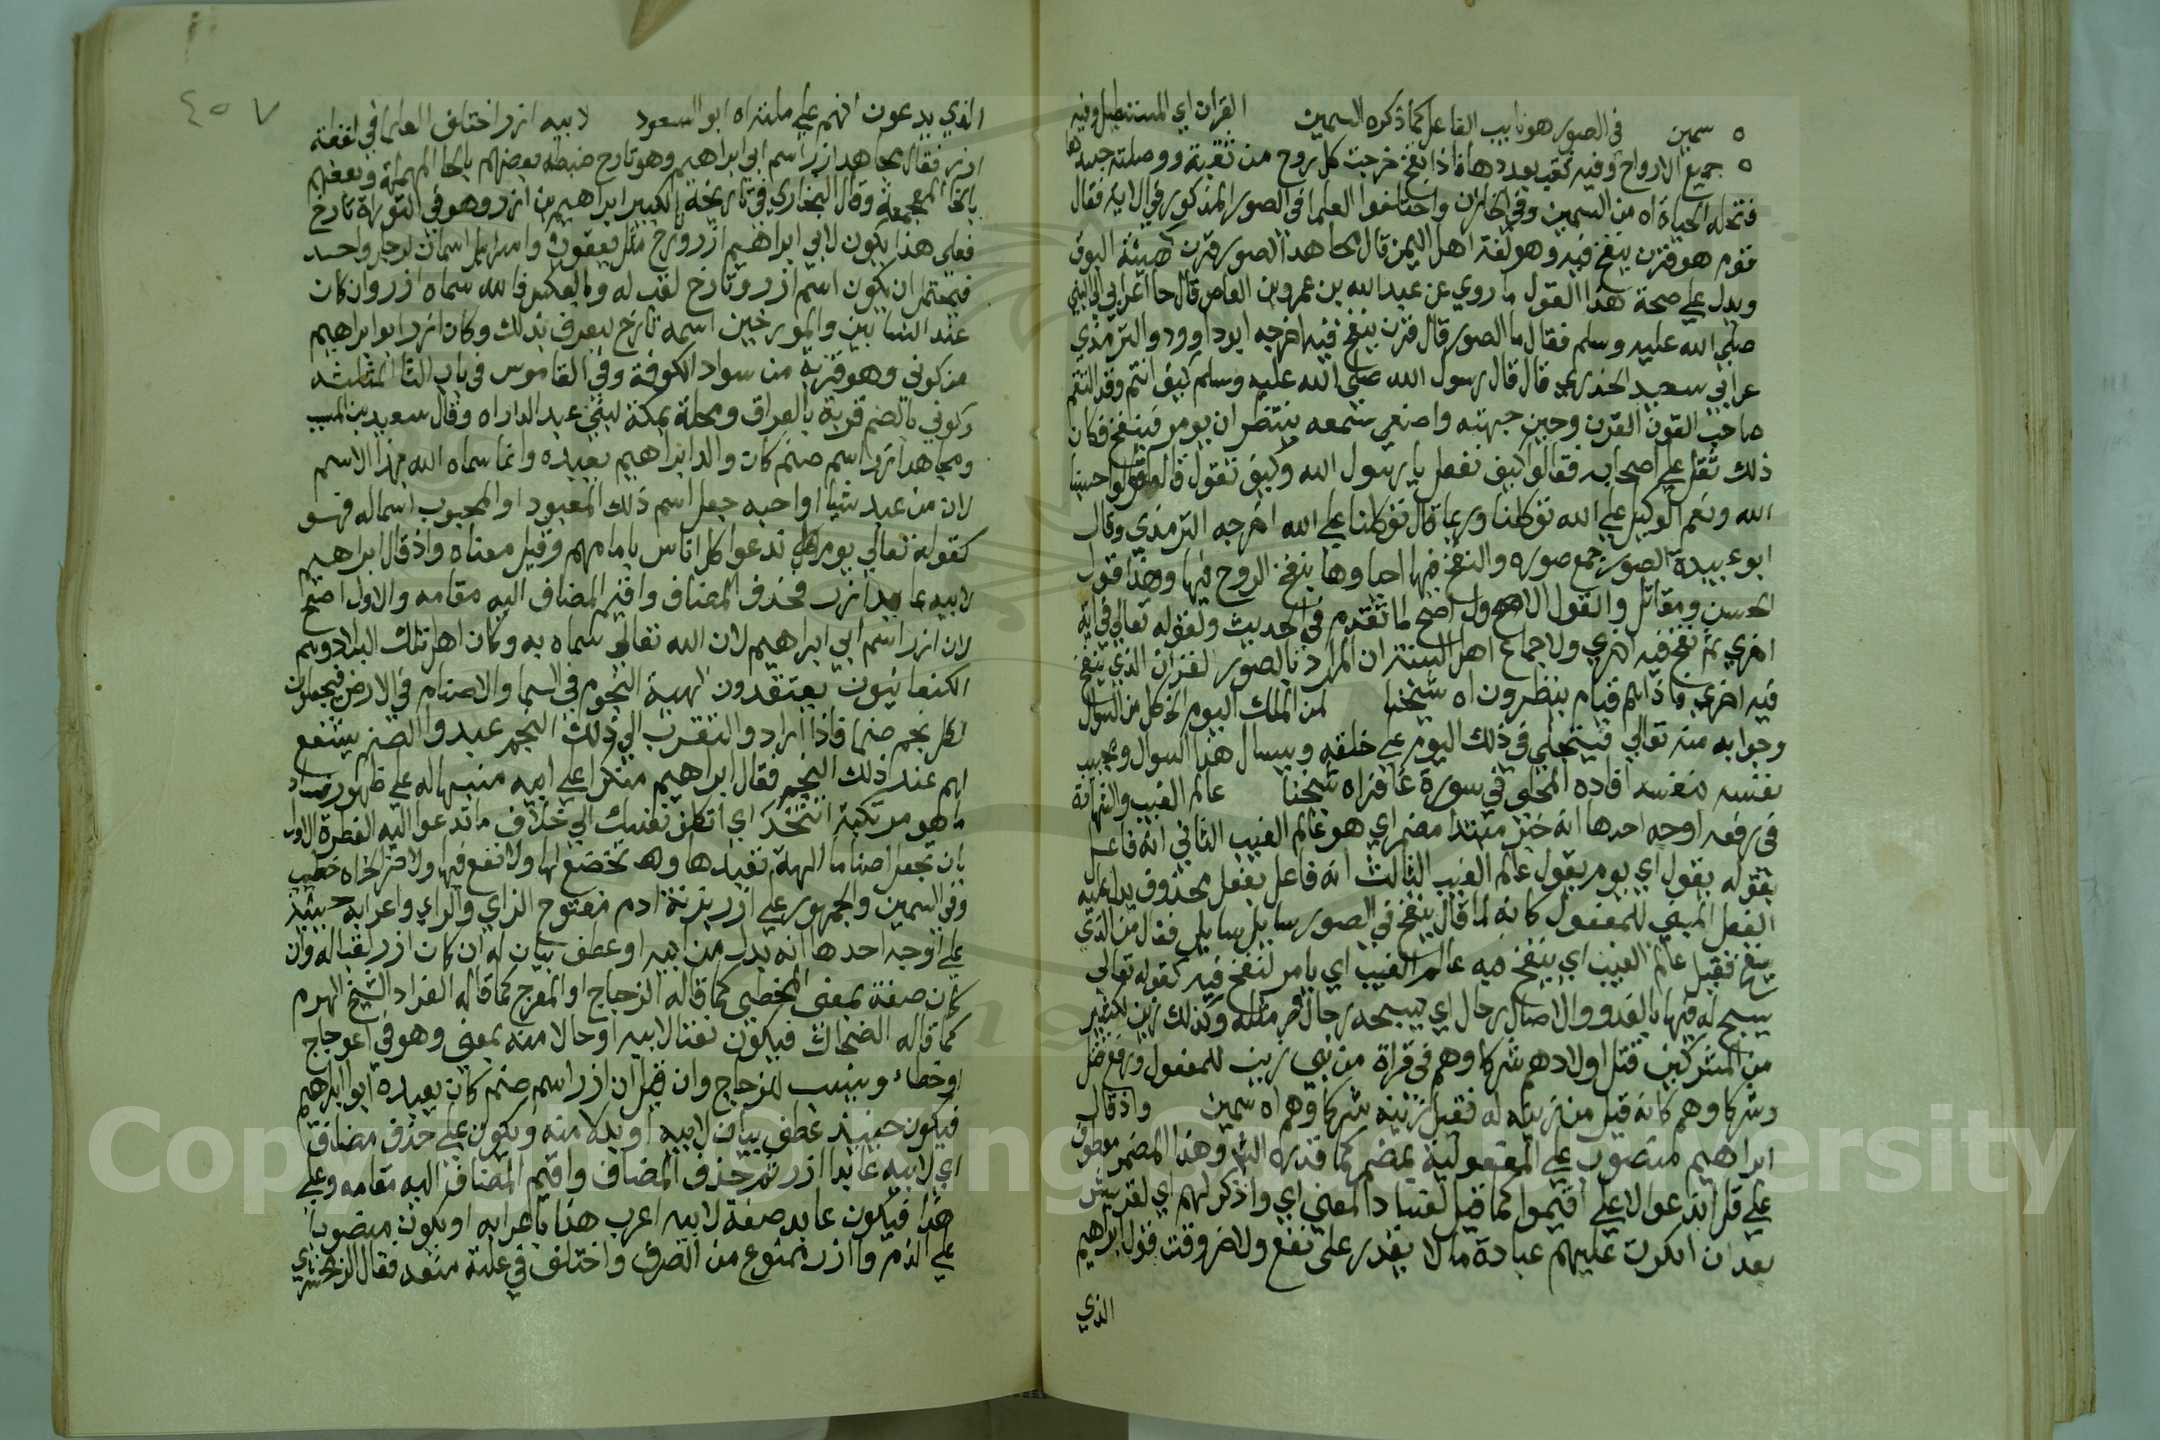 ه سمين في الصور هو نايب الفاعل كما ذكره السمين القرن اي المستطيل وفيه
ه جميع الارواح وفيه ثقب بعددها فاذا نفخ خرجت كل روح من ثقبة ووصلت جسدها
فتحله الحياة اه من السمين وفي الخازن واختلفوا العلما في الصور المذكور في الاية فقال
قوم هو قرن ينفخ فيه وهو لغة اهل اليمن قال مجاهد الصور قرن كهيئة البوق
ويدل علي صحة هذا القول ما روي عن عبد الله بن عمرو بن العاص قال جا اعرابي الي النبي
صلي الله عليه وسلم فقال ما الصور قال قرن ينفخ فيه اخرجه ابو داوود والترمذي
عن ابي سعيد الخدري قال قال رسول الله صلي الله عليه وسلم كيف انتم وقد التقم
صاحب القرن القرن وحني جبهته واصغي سمعه ينتظر ان يومر فينفخ فكان
ذلك ثقل علي اصحابه فقالوا كيف نفعل يا رسول الله وكيف نقول قال قولوا حسبنا
الله ونعم الوكيل علي الله توكلنا وربما قال توكلنا علي الله اخرجه الترمذي وقال
ابو عبيدة الصور جمع صوره والنفخ فيها احياوها بنفخ الروح فيها وهذا قول
الحسن ومقاتل والقول الاول اصح لما تقدم في الحديث ولقوله تعالي في اية
اخري ثم نفخ فيه اخري ولاجماع اهل السنة ان المراد بالصور القرن الذي ينفخ
فيه اخري فاذا هم قيام ينظرون اه شيخنا لمن الملك اليوم الخ كل من السوال
وجوابه منه تعالي فيتجلي في ذلك اليوم علي خلقه ويسال هذا السوال ويجيب
نفسه بنفسه افاده المحلي في سورة غافر اه شيخنا عالم الغيب والشهادة
في رفعه اوجه احدها انه خبر مبتدا مضمر اي هو عالم الغيب الثاني انه فاعل
بقوله يقول اي يوم يقول عالم الغيب الثالث انه فاعل بفعل محذوف يدل عليه
الفعل المبني للمفعول كانه لما قال ينفخ في الصور سايل سايل فقال من الذي
ينفخ فقيل عالم الغيب اي ينفخ فيه عالم الغيب اي يامر لنفخ فيه كقوله تعالي
يسبح له فيها بالغدو والاصال رجال اي يسبحه رجال ومثله وكذلك زين لكثير
من المشركين قتل اولادهم شركاوهم في قراة من بني زين للمفعول ورفع قتل
وشركاوهم كانه قيل من زينه له فقيل زينه شركاوهم اه سمين واذ قال
ابراهيم منصوب علي المفعولية بمضمر كما قدره الش وهذا المضمر معطوف
علي قل اندعوا لا علي اقيموا كما قيل لفساد المعني اي واذكر لهم اي لقريش
بعد ان انكرت عليهم عبادة ما لا يقدر علي نفع ولا ضر وقت قول ابراهيم
الذي
٤٥٧
الذي يدعون انهم علي ملته اه ابو السعود لابيه ازر اختلف العلما في لفظة
ازر فقال مجاهد ازر اسم ابي ابراهيم وهو تارح ضبطه بعضهم بالحا المهملة وبعضهم
بالخا المعجمة وقال البخاري في تاريخه الكبير ابراهيم بن ازر وهو في التوراة تارخ
فعلي هذا يكون لابي ابراهيم ازر وتارخ مثل يعقوب واسرايل اسمان لرجل واحد
فيحتمل ان يكون اسم ازر وتارخ لقب له وبالعكس فالله سماه ازر وان كان
عند النسابين والمورخين اسمه تارخ ليعرف بذلك وكان ازر ابو ابراهيم
من كوثي وهو قرية من سواد الكوفة وفي القاموس في باب الثا المثلثه
وكوثي بالضم قرية بالعراق ومحلة بمكة لبني عبد الدار اه وقال سعيد بن المسيب
ومجاهد ازر اسم صنم كان والد ابراهيم يعبده وانما سماه الله بهذا الاسم
لان من عبد شيا او احبه جعل اسم ذلك المعبود او المحبوب اسما له فهو
كقوله تعالي يوم ندعوا كل اناس بامامهم وقيل معناه واذ قال ابراهيم
لابيه عابد ازر فحذف المضاف واقيم المضاف اليه مقامه والاول اصح
لان ازر اسم ابي ابراهيم لان الله تعالي سماه به وكان اهل تلك البلاد وهم
الكنعانيون يعتقدون الهية النجوم في السما والاصنام في الارض فيجعلون
لكل نجم صنما فاذا ارادوا التقرب الي ذلك النجم عبدوا الصنم ليشفع
لهم عند ذلك النجم فقال ابراهيم منكرا علي ابيه منبها له علي ظهور فساد
ما هو مرتكبه اتتخذ اي اتكلف نفسك الي خلاف ما تدعوا اليه الفطرة الاولي
بان تجعل اصناما الهة تعبدها وتخضع لها ولا نفع فيها ولا ضر الخ اه خطيب
وفي السمين والجمهور علي ازر بزنة ادم مفتوح الزاي والراي واعرابه حينئذ
علي اوجه احدها انه بدل من ابيه او عطف بيان له ان كان ازر لقبا له وان
كان صفة بمعني المخطي كما قاله الزجاج او المعوج كما قاله الفراد الشيخ الهرم
كما قاله الضحاك فيكون نعتا لابيه او حالا منه بمعني وهو في اعوجاج
او خطاء وينسب للزجاج وان قيل ان ازر اسم صنم كان يعبده ابو ابراهيم
فيكون حينئذ عطف بيان لابيه او بدلا منه ويكون علي حذف مضاف
اي لابيه عابد ازر ثم حذف المضاف واقيم المضاف اليه مقامه وعلي
هذا فيكون عابد صفة لابيه اعرب هذا باعرابه او يكون منصوبا
علي الذم وازر ممنوع من الصرف واختلف في علة منعه فقال الزمخشري